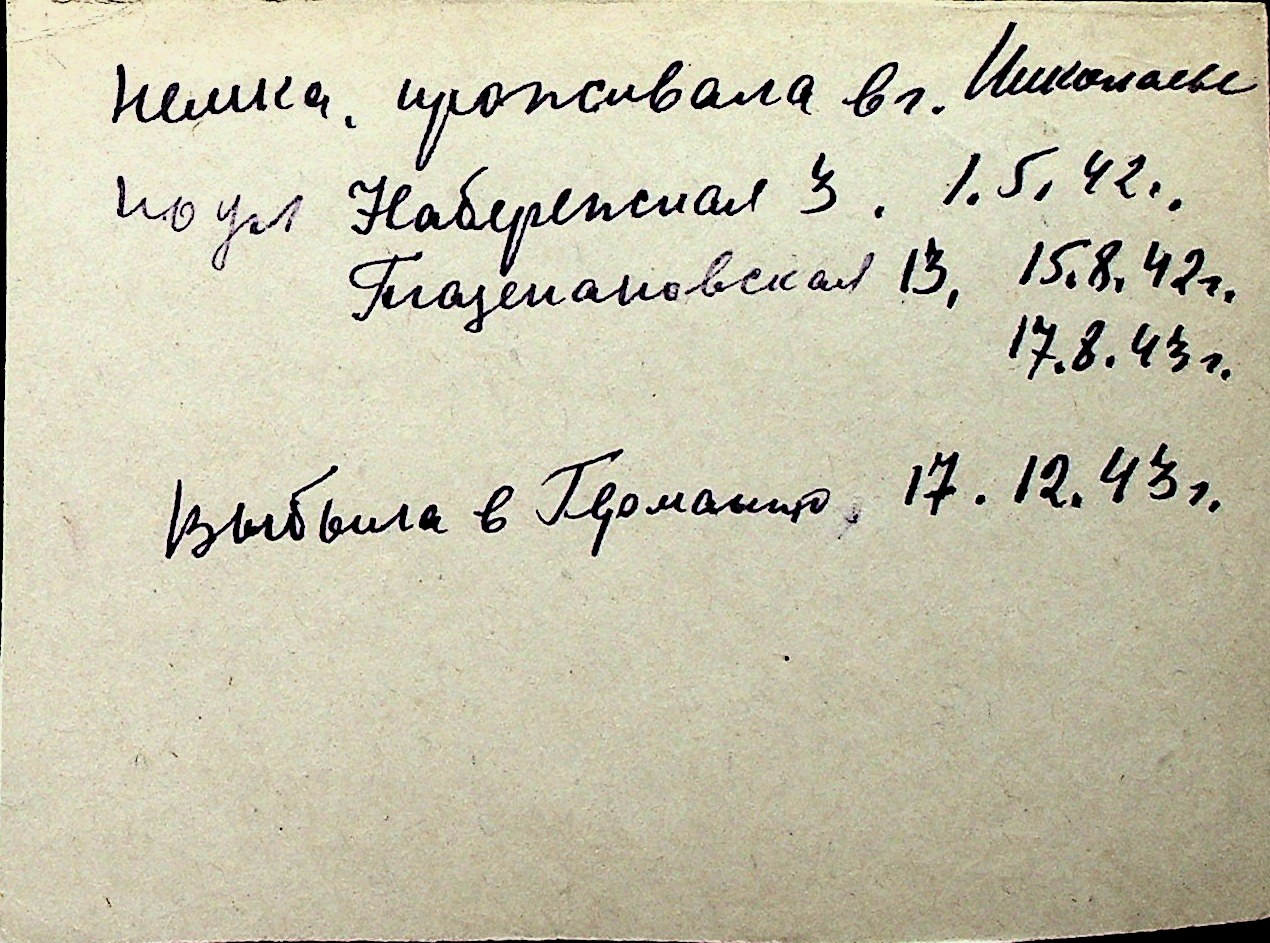 немка, проживала в г. Николаеве
по ул Набережная 3. 1.5.42г.
13, 15.8.42г.
17.8.43г.
Выбыла в Германию, 17.12.43г.